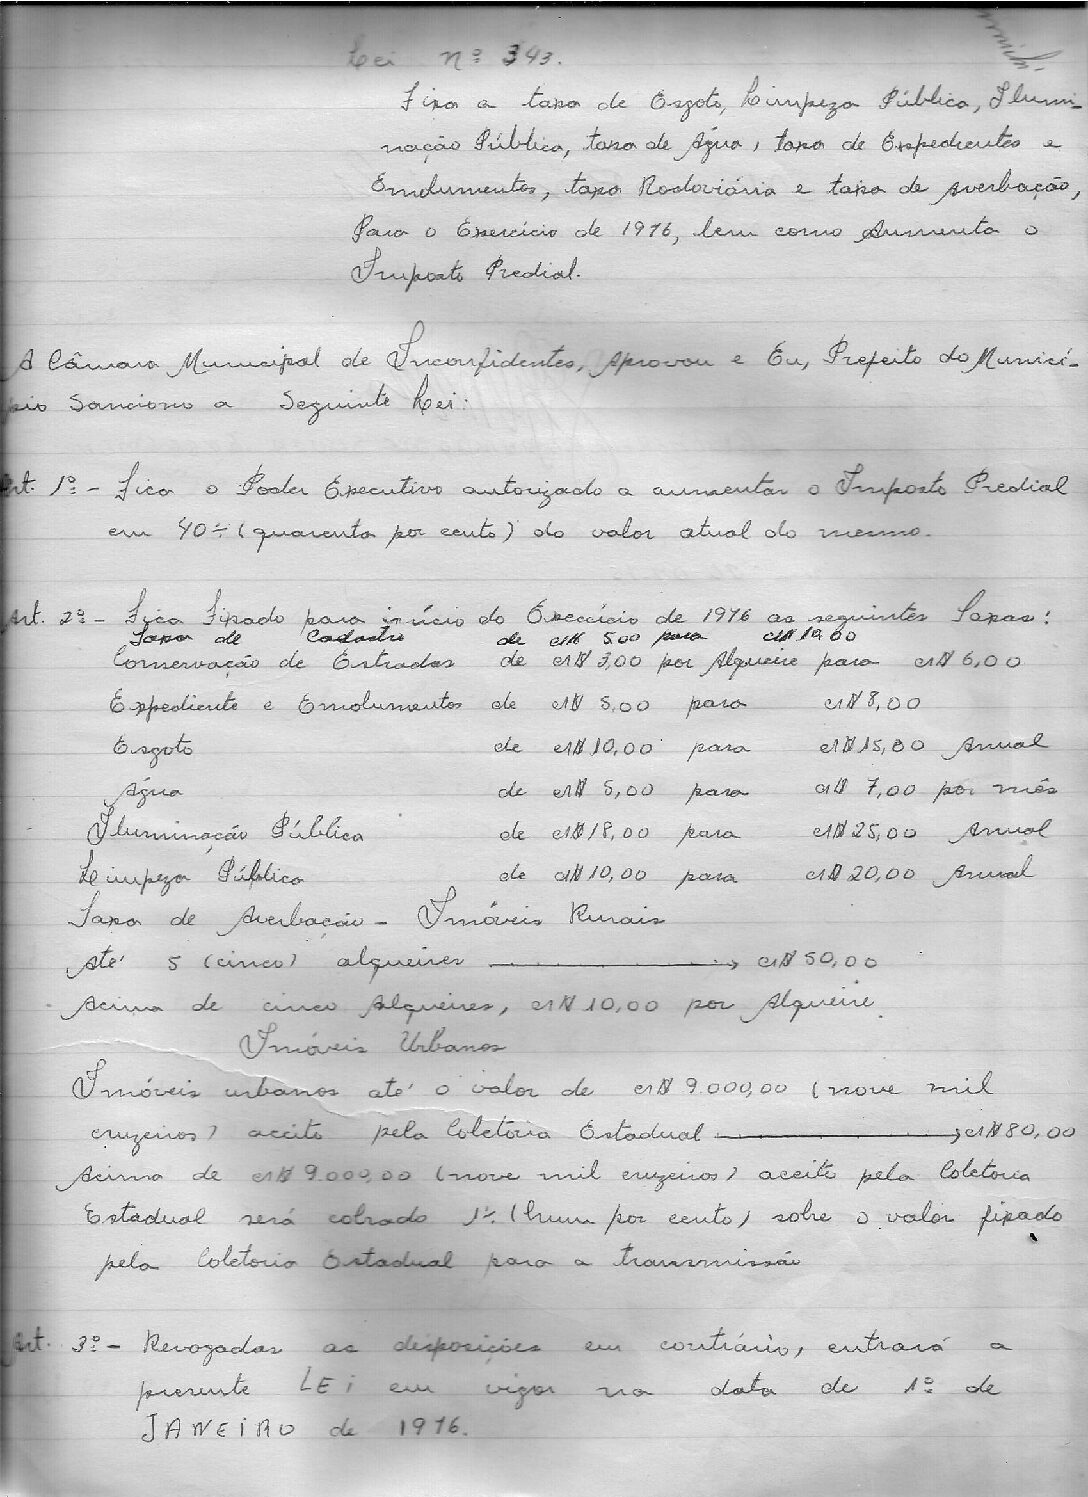 Lei nº 343.
Fixa a taxa de Esgoto, Limpeza Pública, Ilumi-
nação Pública, taxa de Água, taxa de Expedientes e
Emolumentos, taxa Rodoviária e taxa de Averbação,
Para o Exercício de 1976, bem como Aumenta o
Imposto Predial.
A Câmara Municipal de Inconfidentes, Aprovou e Eu, Prefeito do Municí-
pio Sanciono a Seguinte Lei:
Art. 1º - Fica o Poder Executivo autorizado a aumentar o Imposto Predial
em 40% (quarenta por cento) do valor atual do mesmo.
Art. 2º - Fica Fixado para início do Exercício de 1976 as seguintes Taxas:
Taxa de Cadastro de cr$ 5,00 para cr$ 10,00
Conservação de Estradas de cr$ 3,00 por Alqueire para cr$ 6,00
Expediente e Emolumentos de cr$ 5,00 para cr$ 8,00
Esgoto de cr$ 10,00 para cr$ 15,00 Anual
Água de cr$ 5,00 para cr$ 7,00 por mês
Iluminação Pública de cr$ 18,00 para cr$ 25,00 Anual
Limpeza Pública de cr$ 10,00 para cr$ 20,00 Anual
Taxa de Averbação - Imóveis Rurais
Até 5 (cinco) alqueires → cr$ 50,00
Acima de cinco Alqueires, cr$ 10,00 por Alqueire.
Imóveis Urbanos
Imóveis urbanos até o valor de cr$ 9.000,00 (nove mil
cruzeiros) aceito pela Coletoria Estadual → cr$ 80,00
Acima de cr$ 9.000,00 (nove mil cruzeiros) aceite pela Coletoria
Estadual será cobrado 1% (hum por cento) sobre o valor fixado
pela Coletoria Estadual para a transmissão
Art. 3º - Revogadas as disposições em contrário, entrará a
presente LEi em vigor na data de 1º de
JANEIRO de 1976.